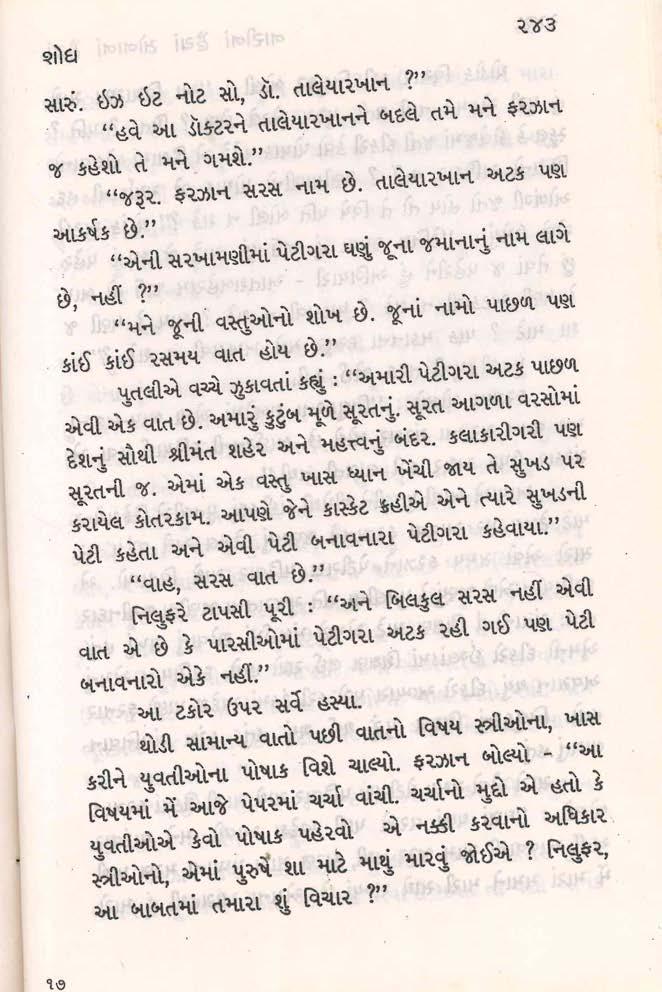 ૨૪૩
શોધ
સારું. ઇઝ ઇટ નોટ સો, ડૉ. તાલેયારખાન ?”
“હવે આ ડૉક્ટરને તાલેયારખાનને બદલે તમે મને ફરઝાન
જ કહેશો તે મને ગમશે.”
“જરૂર. ફરઝાન સરસ નામ છે. તાલેયારખાન અટક પણ
આકર્ષક છે.”
“એની સરખામણીમાં પેટીગરા ઘણું જૂના જમાનાનું નામ લાગે
છે, નહીં ?”
“મને જૂની વસ્તુઓનો શોખ છે. જૂનાં નામો પાછળ પણ
કાંઈ કાંઈ રસમય વાત હોય છે.”
પુતલીએ વચ્ચે ઝુકાવતાં કહ્યું : “અમારી પેટીગરા અટક પાછળ
એવી એક વાત છે. અમારું કુટુંબ મૂળે સૂરતનું. સૂરત આગળા વરસોમાં
દેશનું સૌથી શ્રીમંત શહેર અને મહત્ત્વનું બંદર. કલાકારીગરી પણ
સૂરતની જ. એમાં એક વસ્તુ ખાસ ધ્યાન ખેંચી જાય તે સુખડ પર
કરાયેલ કોતરકામ. આપણે જેને કાસ્કેટ કહીએ એને ત્યારે સુખડની
પેટી કહેતા અને એવી પેટી બનાવનારા પેટીગરા કહેવાયા.”
“વાહ, સરસ વાત છે.”
નિલુફરે ટાપસી પૂરી : “અને બિલકુલ સરસ નહીં એવી
વાત એ છે કે પારસીઓમાં પેટીગરા અટક રહી ગઈ પણ પેટી
બનાવનારો એકે નહીં.”
આ ટકોર ઉપર સર્વે હસ્યા.
થોડી સામાન્ય વાતો પછી વાતનો વિષય સ્ત્રીઓના, ખાસ
કરીને યુવતીઓના પોષાક વિશે ચાલ્યો. ફરઝાન બોલ્યો - “આ
વિષયમાં મેં આજે પેપરમાં ચર્ચા વાંચી. ચર્ચાનો મુદ્દો એ હતો કે
યુવતીઓએ કેવો પોષાક પહેરવો એ નક્કી કરવાનો અધિકાર
સ્ત્રીઓનો, એમાં પુરુષે શા માટે માથું મારવું જોઈએ ? નિલુફર,
આ બાબતમાં તમારા શું વિચાર ?”
૧૭